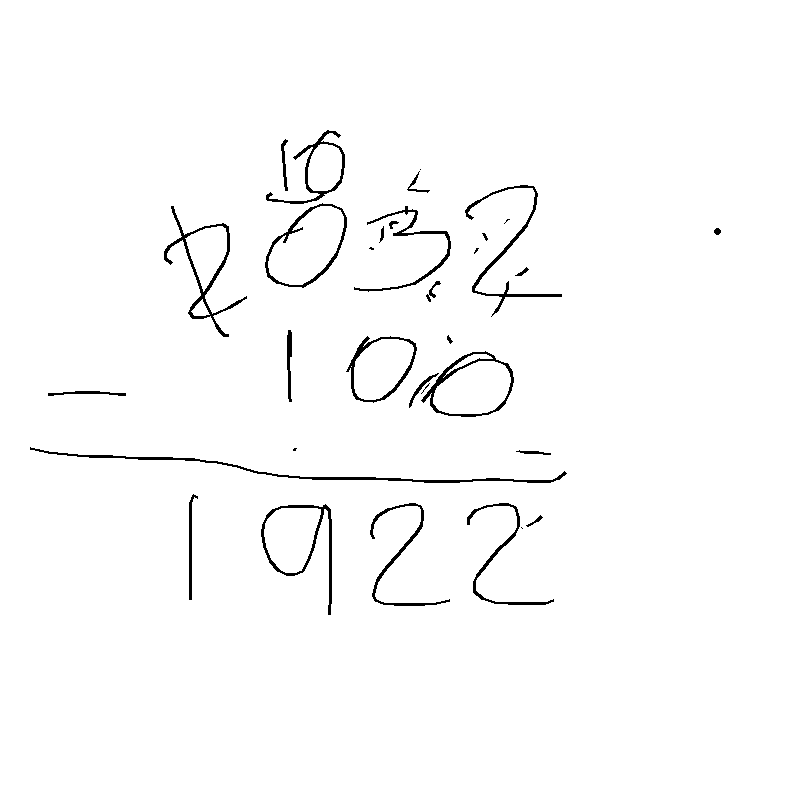 10
2032
- 100
1922